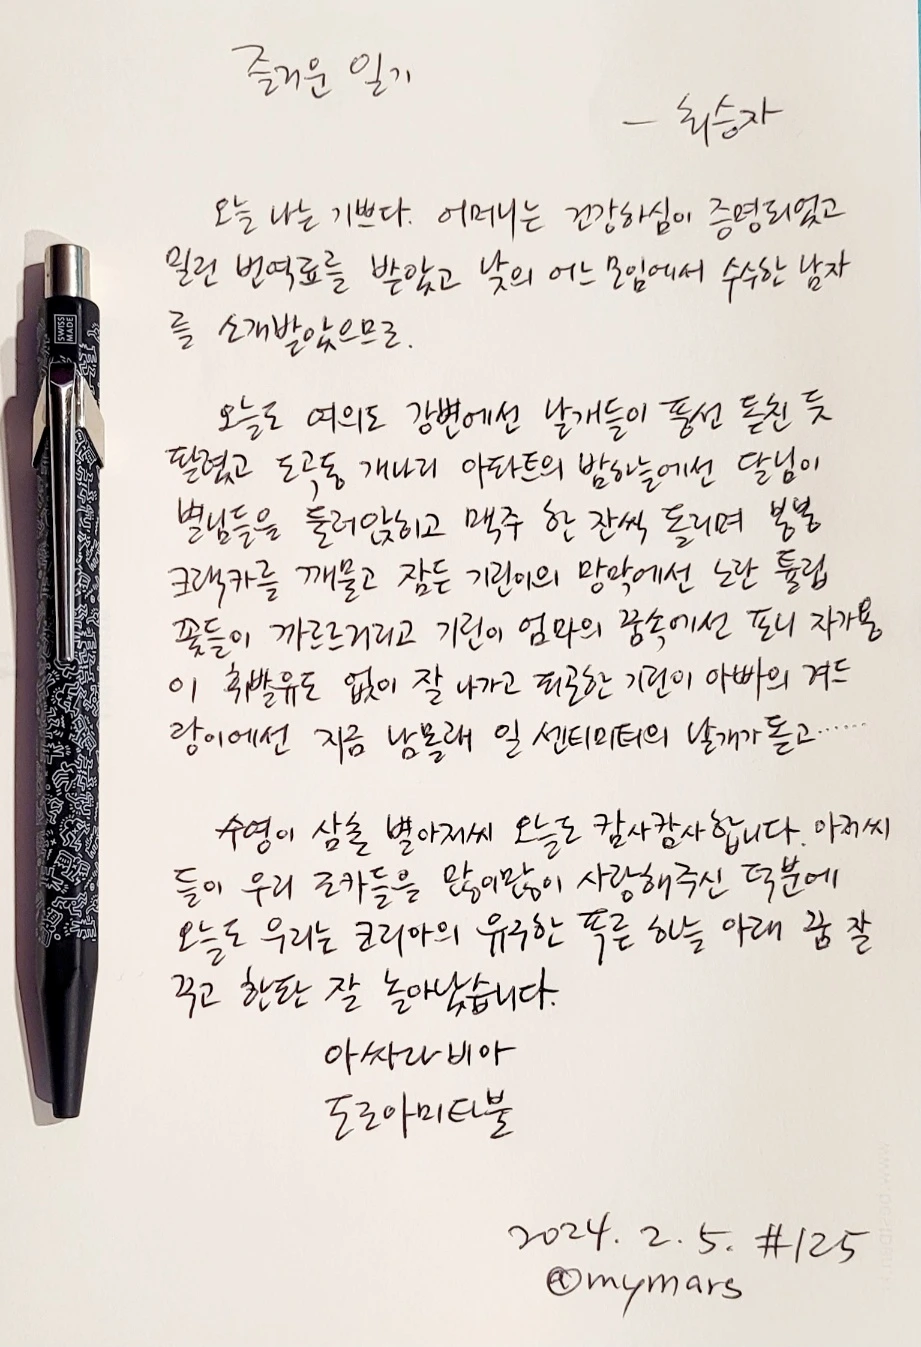 즐거운 일기
- 최승자
오늘 나는 기쁘다. 어머니는 건강하심이 증명되었고
밀린 번역료를 받았고 낮의 어느 모임에서 수수한 남자
를 소개받았으므로.
오늘도 여의도 강변에선 날개들이 풍선 돋친 듯
팔렸고 도곡동 개나리 아파트의 밤하늘에선 달님이
별님들을 둘러앉히고 맥주 한 잔씩 돌리며 봉봉
크랙카를 깨물고 잠든 기린이의 망막에선 노란 튤립
꽃들이 까르르거리고 기린이 엄마의 꿈속에선 포니 자가용
이 휘발유도 없이 잘 나가고 피곤한 기린이 아빠의 겨드
랑이에선 지금 남몰래 일 센티미터의 날개가 돋고……
수영이 삼촌 별아저씨 오늘도 캄사캄사합니다. 아저씨
들이 우리 조카들을 많이많이 사랑해주신 덕분에
오늘도 우리는 코리아의 유구한 푸른 하늘 아래 꿈 잘
꾸고 한판 잘 놀아났습니다.
아싸라비아
도로아미타불
2024. 2. 5. #125
@mymars
SWISS
MADE